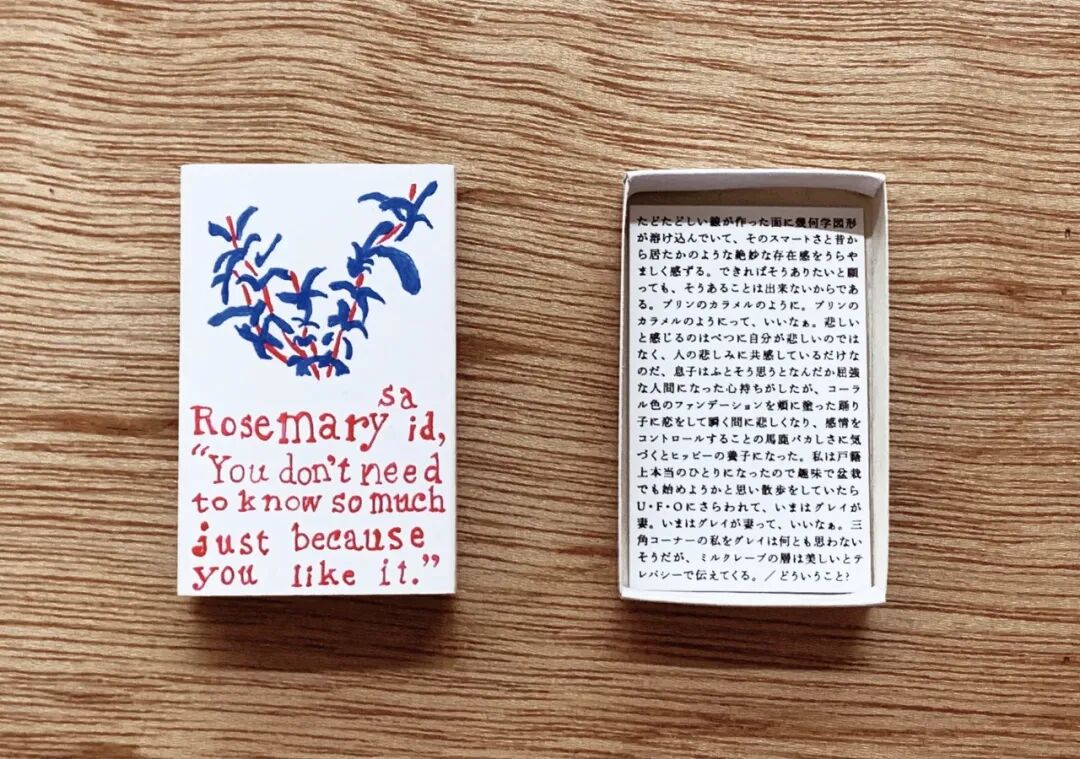 Rosemary said,
“You don't need
to know so much
just because
you like it.”
たどたどしい線が作った面に幾何学図形
が溶け込んでいて、そのスマートさと昔か
ら居たかのような絶妙な存在感をうらや
ましく感ずる。できればそうありたいと願
っても、そうあることは出来ないからであ
る。プリンのカラメルのように。プリンの
カラメルのようにって、いいなぁ。悲しい
と感じるのはべつに自分が悲しいのでは
なく、人の悲しみに共感しているだけな
のだ、息子はふとそう思うとなんだか屈強
な人間になった心持ちがしたが、コーラ
ル色のファンデーションを頬に塗った踊り
子に恋をして瞬く間に悲しくなり、感情を
コントロールすることの馬鹿バカしさに気
づくとヒッピーの養子になった。私は戸籍
上本当のひとりになったので趣味で盆栽
でも始めようかと思い散歩をしていたら
U・F・Oにさらわれて、いまはグレイが
妻。いまはグレイが妻って、いいなぁ。三
角コーナーの私をグレイは何とも思わない
そうだが、ミルクレープの層は美しいとテ
レパシーで伝えてくる。／どういうこと?